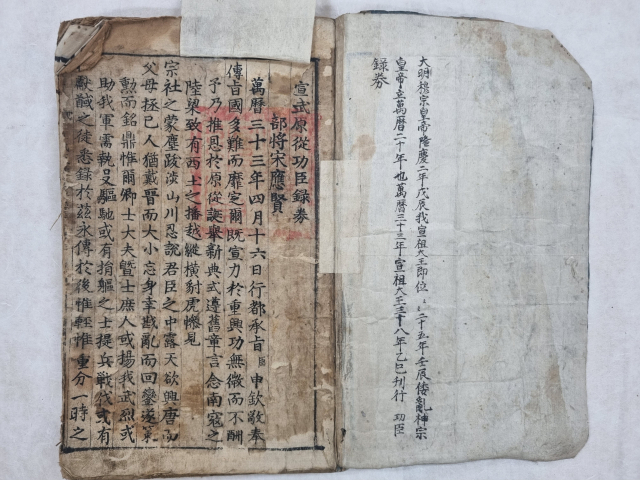 大明穆宗皇帝隆慶二年戊辰我宣祖大王即位二十五年壬辰倭亂神宗
皇帝立萬曆二十年也萬曆三十三年宣祖大王三十八年乙巳刊行 功臣
録券
宣武原從功臣錄券
部將宋應賢
萬曆三十三年四月十六日行都承旨臣申欽敬奉
傳旨國多難而靡定爾旣宣力於重興功無微而不酬
予乃推恩於原從誕擧新典式遵舊章言念南寇之
陸梁致有西土之播越縱橫豺虎慘見
宗社之蒙塵跋涉山川忍說君臣之中露天欲興唐而
父母拯已人猶戴晋而大小忘身幸戡亂而回鑾遂策
勳而銘鼎惟爾卿士大夫曁士庶人或揚我武烈或
助我軍需執殳驅馳或有捐軀之士提兵戰伐或有
獻馘之徒悉錄於玆永傳於後惟輕惟重分一時之